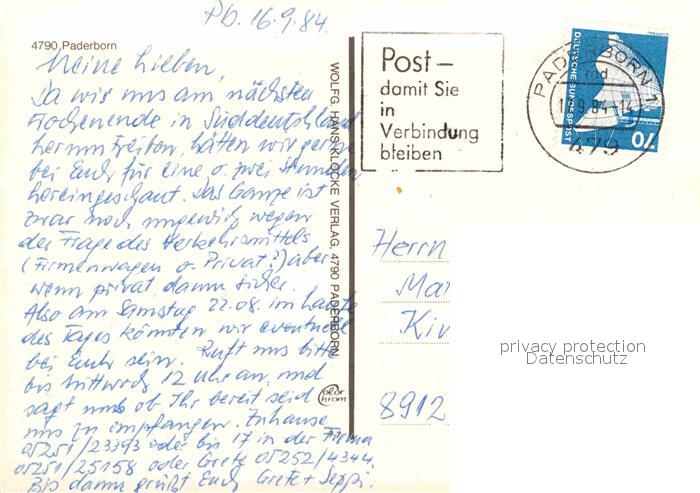 Pb. 16.9.84.
4790 Paderborn
Meine Lieben,
Da wir uns am nächsten
Wochenende in Süddeutschland
herumtreiben, hätten wir gerne
bei Euch für eine o. zwei Stunden
hereingeschaut. Das Ganze ist
zwar noch ungewiß wegen
der Frage des Verkehrsmittels
(Firmenwagen o. Privat?) aber
wenn privat, dann sicher.
Also am Samstag 22.08. im Laufe
des Tages könnten wir eventuell
bei Euch sein. Ruft uns bitte
bis Mittwoch 12 Uhr an, und
sagt uns ob Ihr bereit seid
uns zu empfangen. Zuhause
05251/23393 oder bis 17 in der Firma
05251/25158 oder Grete 05252/4344
Bis dann grüßt Euch Grete + Seppi.
WOLFG. HANS KLOCKE VERLAG, 4790 PADERBORN
Color
Chrom
Post –
damit Sie
in
Verbindung
bleiben
PADERBORN 1
md
9.84-14
479
DEUTSCHE BUNDESPOST
70
Herrn
Ma
Kir
8912
privacy protection
Datenschutz